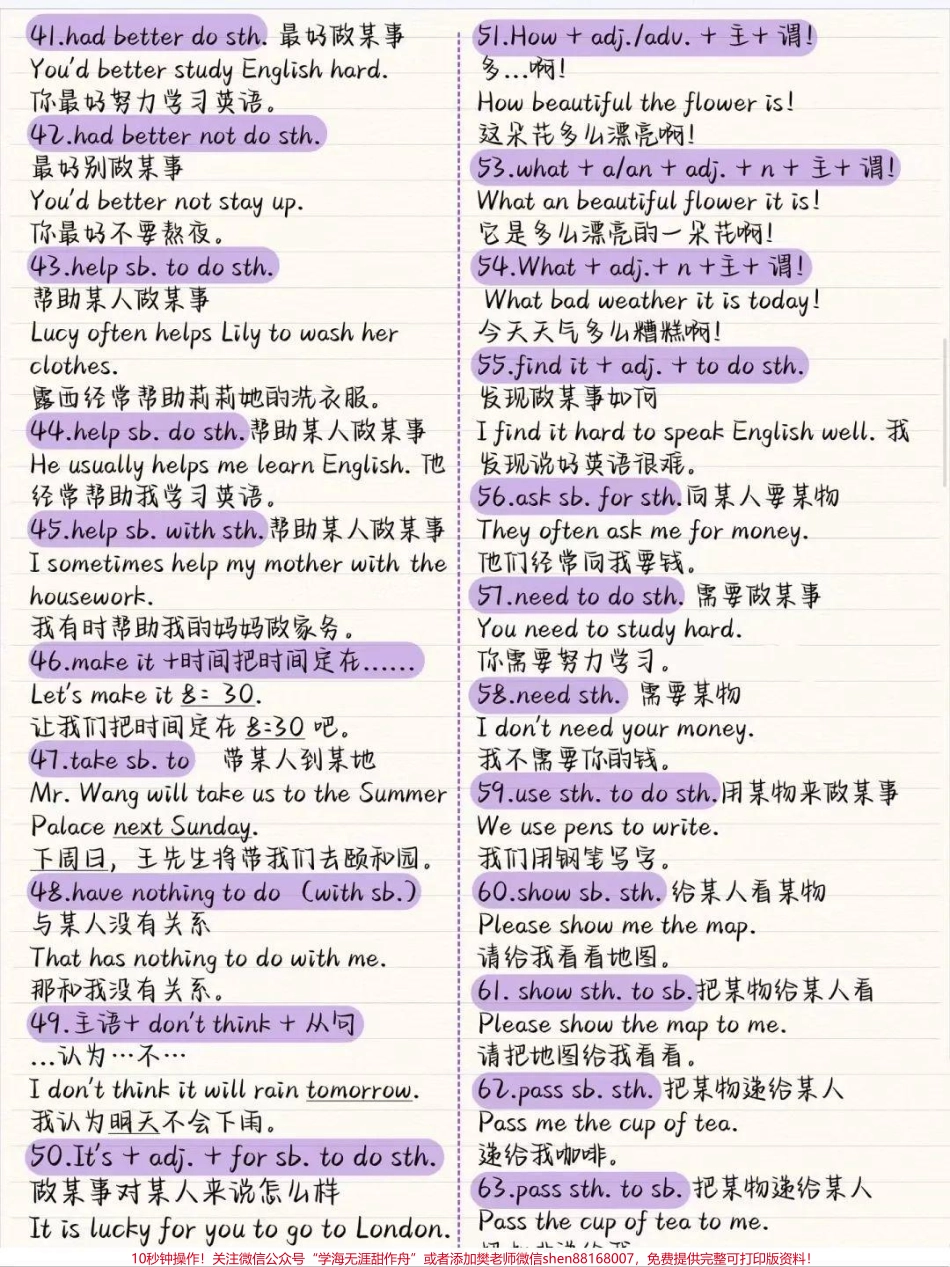 41.had better do sth. 最好做某事
You'd better study English hard.
你最好努力学习英语。
42.had better not do sth.
最好别做某事
You'd better not stay up.
你最好不要熬夜。
43.help sb. to do sth.
帮助某人做某事
Lucy often helps Lily to wash her
clothes.
露西经常帮助莉莉她的洗衣服。
44.help sb. do sth.帮助某人做某事
He usually helps me learn English. 他
经常帮助我学习英语。
45.help sb. with sth.帮助某人做某事
I sometimes help my mother with the
housework.
我有时帮助我的妈妈做家务。
46.make it +时间把时间定在……
Let's make it 8：30.
让我们把时间定在 8:30 吧。
47.take sb. to 带某人到某地
Mr. Wang will take us to the Summer
Palace next Sunday.
下周日，王先生将带我们去颐和园。
48.have nothing to do （with sb.）
与某人没有关系
That has nothing to do with me.
那和我没有关系。
49.主语+ don't think + 从句
…认为…不…
I don't think it will rain tomorrow.
我认为明天不会下雨。
50.It's + adj. + for sb. to do sth.
做某事对某人来说怎么样
It is lucky for you to go to London.
51.How + adj./adv. + 主+ 谓!
多…啊!
How beautiful the flower is!
这朵花多么漂亮啊!
53.what + a/an + adj. + n + 主+ 谓!
What an beautiful flower it is!
它是多么漂亮的一朵花啊!
54.What + adj.+ n +主+ 谓!
What bad weather it is today!
今天天气多么糟糕啊!
55.find it + adj. + to do sth.
发现做某事如何
I find it hard to speak English well. 我
发现说好英语很难。
56.ask sb. for sth.向某人要某物
They often ask me for money.
他们经常向我要钱。
57.need to do sth. 需要做某事
You need to study hard.
你需要努力学习。
58.need sth. 需要某物
I don't need your money.
我不需要你的钱。
59.use sth. to do sth.用某物来做某事
We use pens to write.
我们用钢笔写字。
60.show sb. sth. 给某人看某物
Please show me the map.
请给我看看地图。
61. show sth. to sb.把某物给某人看
Please show the map to me.
请把地图给我看看。
62.pass sb. sth. 把某物递给某人
Pass me the cup of tea.
递给我咖啡。
63.pass sth. to sb. 把某物递给某人
Pass the cup of tea to me.
10秒钟操作！关注微信公众号“学海无涯甜作舟”或者添加樊老师微信shen88168007，免费提供完整可打印版资料！